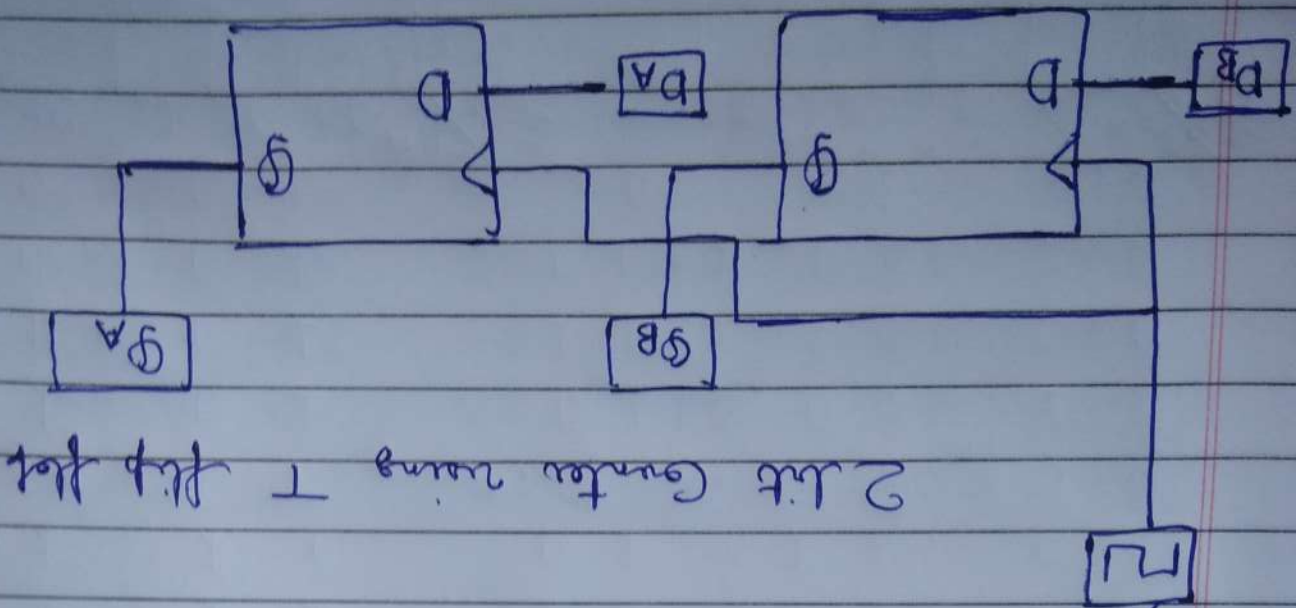 2 bit Counter using T flip flop
QA QB
Q Q
D DA D DB